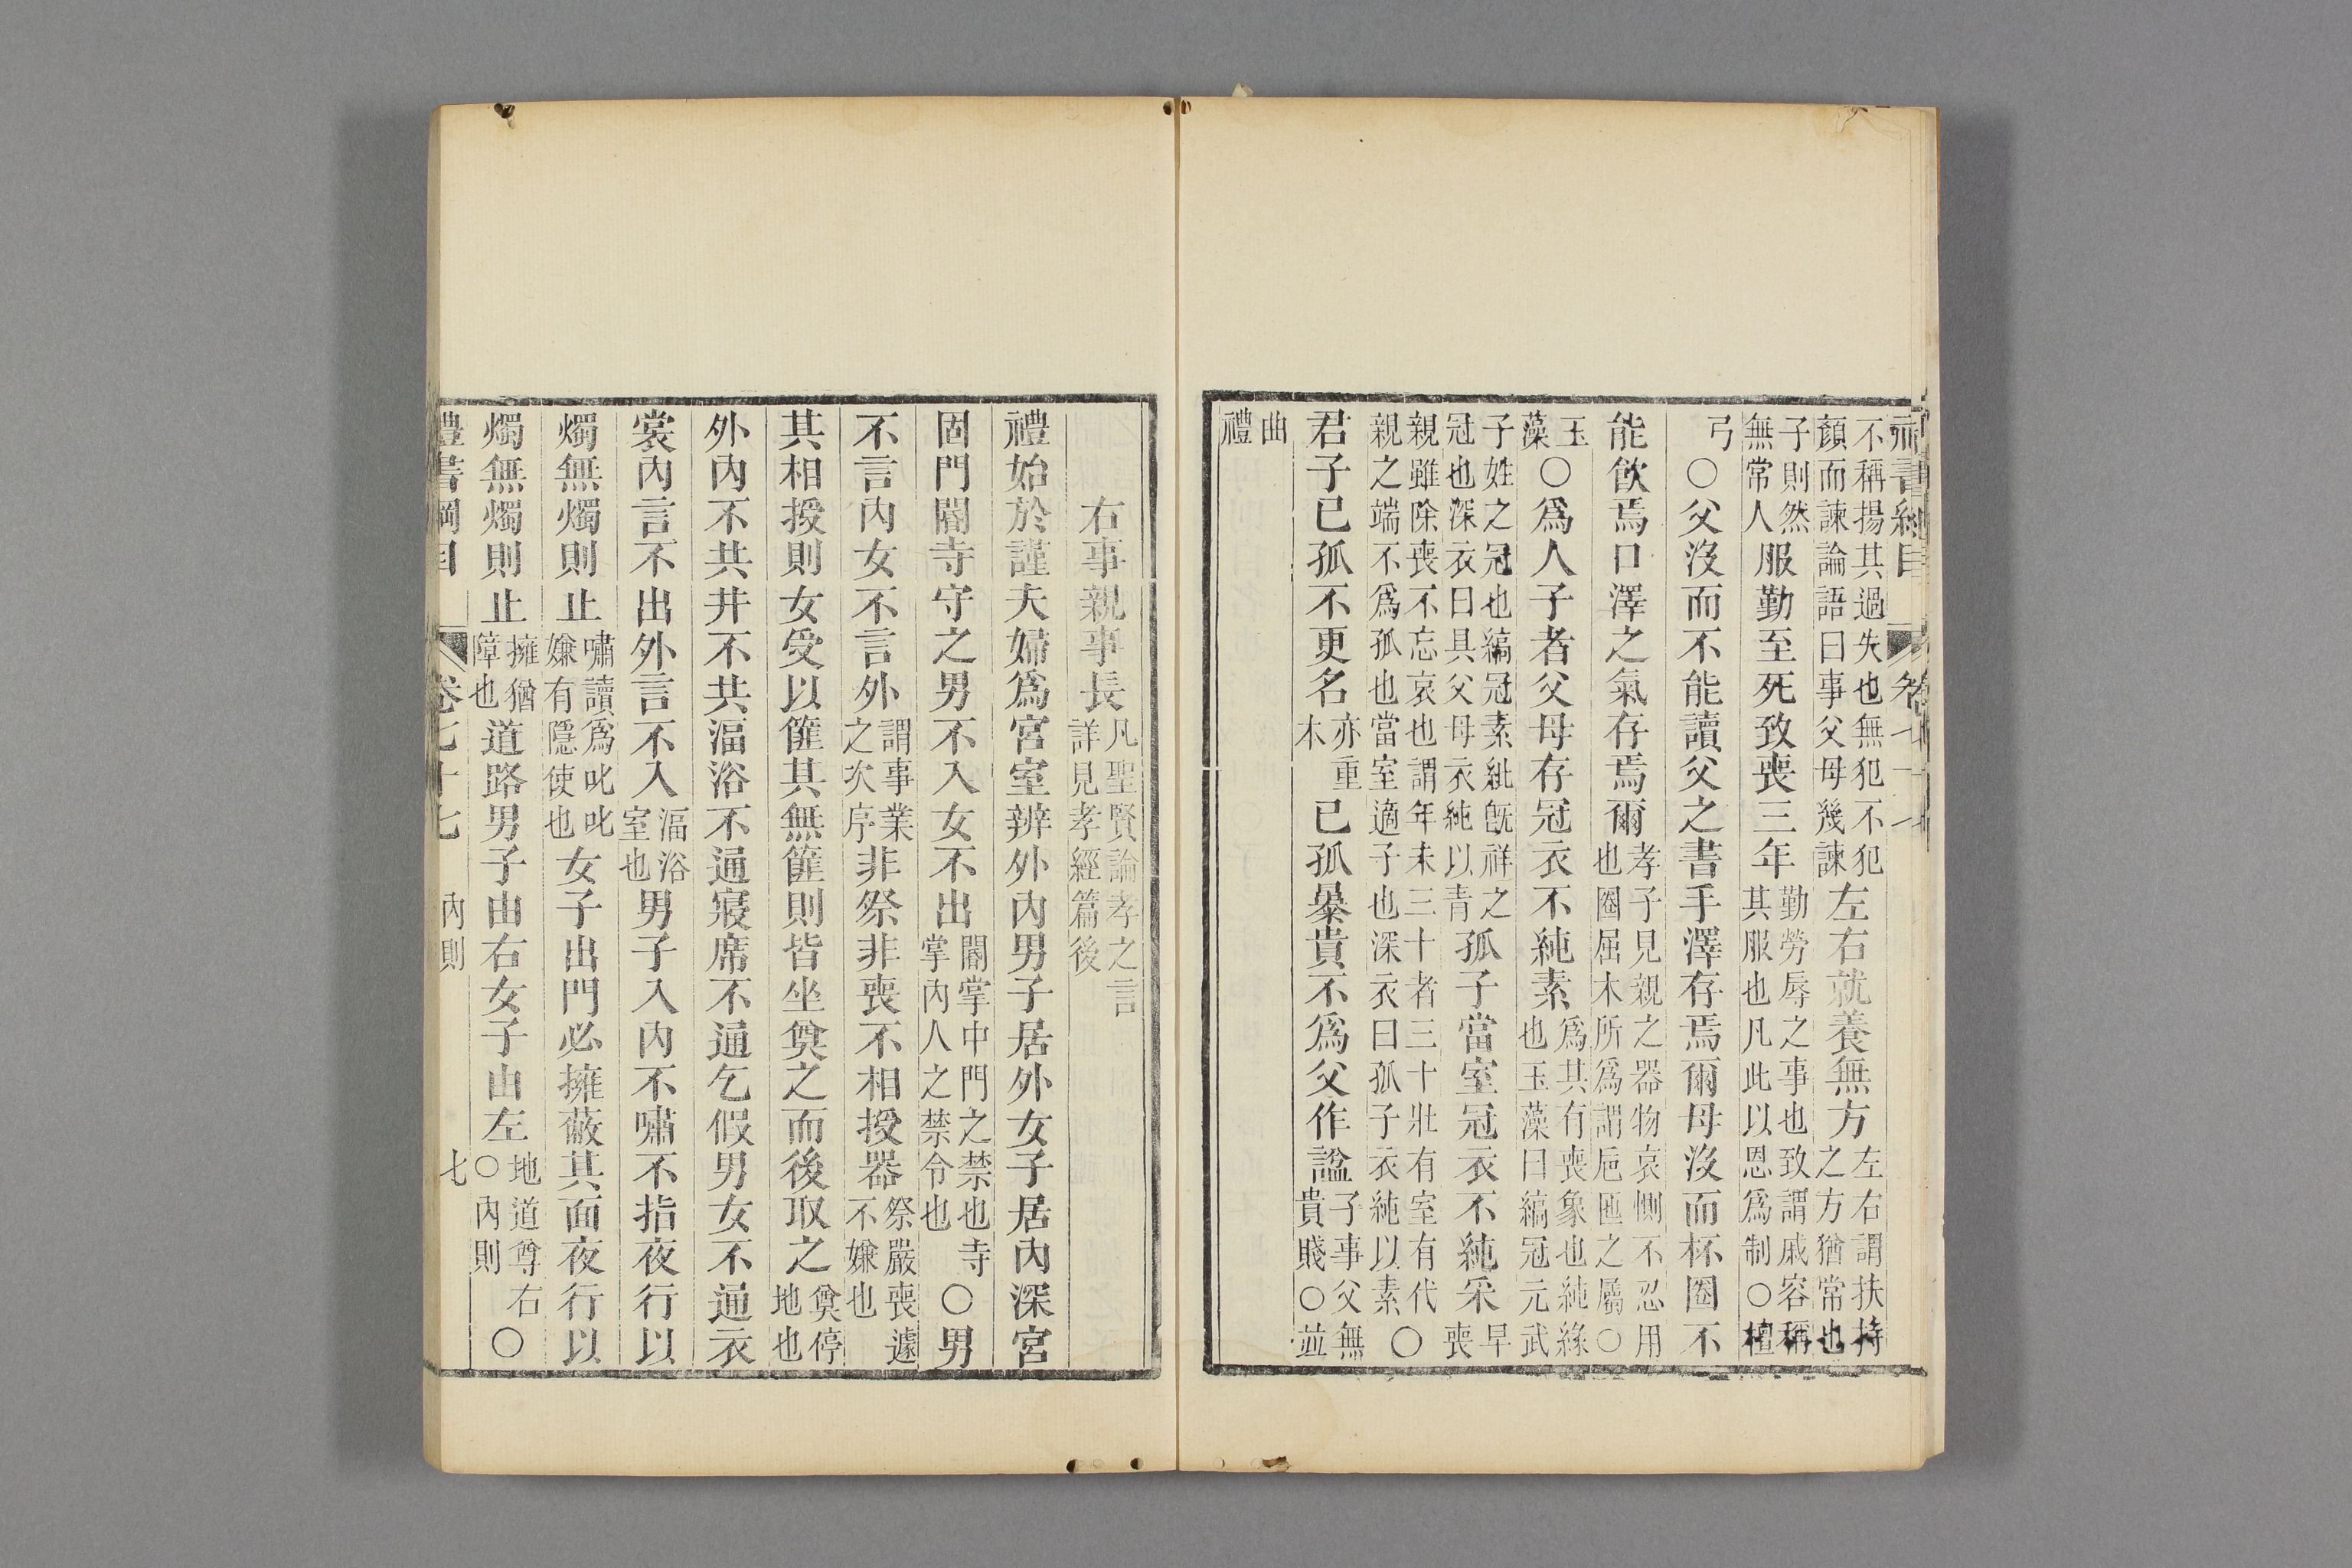 不稱揚其過失也無犯不犯顏而諫論語曰事父母幾諫左右就養無方左右謂扶持之方猶常也
子則然無常人服勤至死致喪三年勤勞辱之事也致謂戚容稱其服也凡此以恩爲制○檀
弓○父沒而不能讀父之書手澤存焉爾母沒而杯圈不
能飲焉口澤之氣存焉爾孝子見親之器物哀惻不忍用也圈屈木所爲謂巵匜之屬○
玉藻○爲人子者父母存冠衣不純素爲其有喪象也純緣也玉藻曰縞冠元武
子姓之冠也縞冠素紕旣祥之冠也深衣曰具父母衣純以青孤子當室冠衣不純采早喪
親雖除喪不忘哀也謂年未三十者三十壯有室有代親之端不爲孤也當室適子也深衣曰孤子衣純以素○
君子已孤不更名亦重木已孤暴貴不爲父作諡子事父無貴賤○並
曲禮
右事親事長凡聖賢論孝之言詳見孝經篇後
禮始於謹夫婦爲宮室辨外內男子居外女子居內深宮
固門閽寺守之男不入女不出閽掌中門之禁也寺掌內人之禁令也○男
不言內女不言外謂事業之次序非祭非喪不相授器祭嚴喪遽不嫌也
其相授則女受以篚其無篚則皆坐奠之而後取之奠停地也
外內不共井不共湢浴不通寢席不通乞假男女不通衣
裳內言不出外言不入湢浴室也男子入內不嘯不指夜行以
燭無燭則止嘯讀爲叱叱嫌有隱使也女子出門必擁蔽其面夜行以
燭無燭則止擁猶障也道路男子由右女子由左地道尊右○內則○
禮書綱目 卷七十七 內則 七